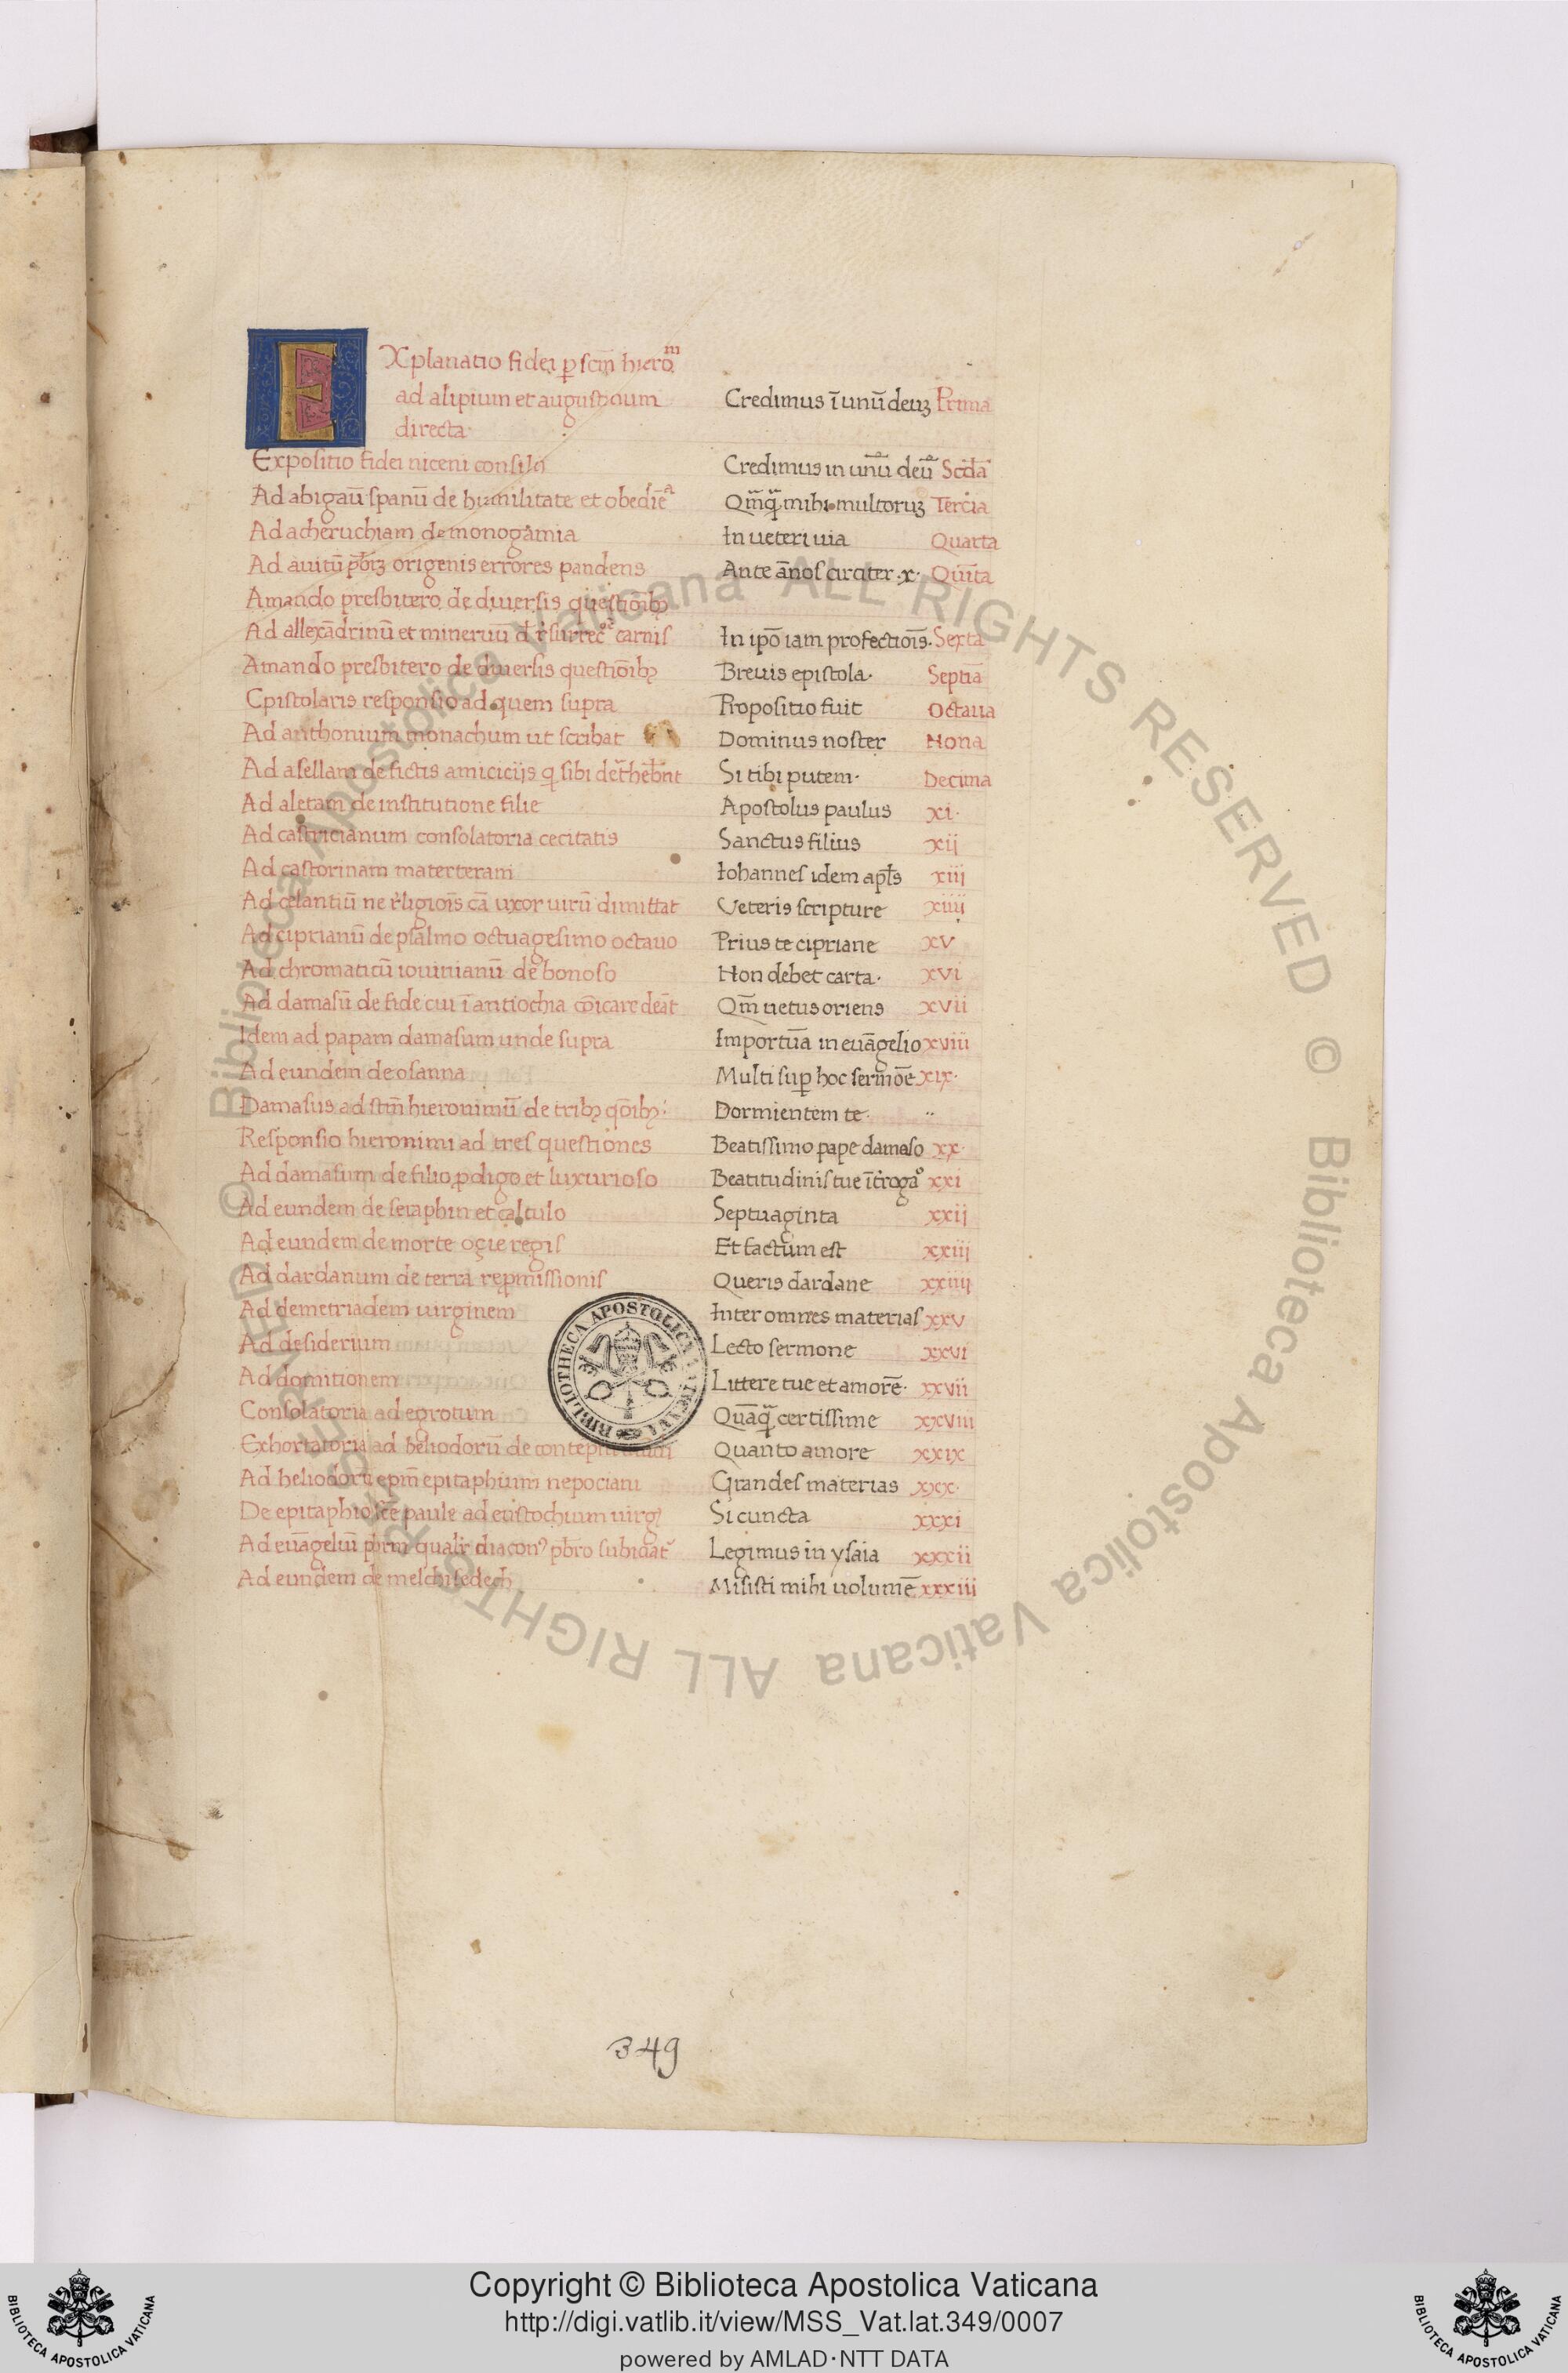 EXplanatio fidei ꝑ scm̄ hiero͏̄m
ad alipium et augustinum Credimus ī unū deuꝫ Prima
directa
Expositio fidei niceni consilii Credimus in unū deū Scd̄a
Ad abigaū spanū de humilitate et obediē Qm̄q̄ mihi multoruꝫ Tercia
Ad acheruchiam de monogamia In ueteri uia Quarta
Ad auitū pb̄rꝫ origenis errores pandens Ante ān̄os circiter .x. Quīta
Amando presbitero de diuersis questiōibꝫ
Ad allexādrinū et mineruū carnis In ip̄o iam profectiōis. Sexta
Amando presbitero de diuersis questiōibꝫ Breuis epistola. Septīa
Epistolaris responsio ad quem supra Propositio fuit Octaua
Ad anthonium monachum ut scribat Dominus noster Nona
Ad asellam de fictis amicicijs q̄ sibi Si tibi putem. Decima
Ad aletam de institutione filie Apostolus paulus xi.
Ad castricianum consolatoria cecitatis Sanctus filius xij
Ad castorinam materteram Iohannes idem apl̄s xiij
Ad celantiū ne r̄ligiōis cā uxor uirū dimittat Ueteris scripture xiiij
Ad ciprianū de psalmo octuagesimo octauo Prius te cipriane xv
Ad chromaticū iouinianū de bonoso Non debet carta. xvi
Ad damasū de fide cui ī antiochia cōicare deāt Qm̄ uetus oriens xvii
Idem ad papam damasum unde supra Importūa in euāgelio xviii
Ad eundem de osanna Multi suꝑ hoc sermōe xix.
Damasus ad scm̄ hieronimū de tribꝫ qōibꝫ Dormientem te.
Responsio hieronimi ad tres questiones Beatissimo pape damaso xx.
Ad damasum de filio ꝓdigo et luxurioso Beatitudinis tue xxi
Ad eundem de seraphin et calculo Septuaginta xxij
Ad eundem de morte ogie regis Et factum est xxiij
Ad dardanum de terra repmissionis Queris dardane xxiiij
Ad demetriadem uirginem Inter omnes materias xxv
Ad desiderium Lecto sermone xxvi
Ad domitionem Littere tue et amorē. xxvii
Consolatoria ad egrotum Quāq̄ certissime xxviii
Exhortatoria ad heliodorū de Quanto amore xxix
Ad heliodorū epm̄ epitaphium nepociani Grandes materias xxx.
De epitaphio scē paule ad eustochium uirgꝫ Si cuncta xxxi
Ad euāgeliū Legimus in ysaia xxxii
Ad eundem de melchisedech Misisti mihi uolumē xxxiii
BIBLIOTHECA APOSTOLICA VATICANA
349
© Biblioteca Apostolica Vaticana ALL RIGHTS RESERVED © Biblioteca Apostolica Vaticana ALL RIGHTS RESERVED
Copyright © Biblioteca Apostolica Vaticana
http://digi.vatlib.it/view/MSS_Vat.lat.349/0007
powered by AMLAD·NTT DATA
BIBLIOTECA APOSTOLICA VATICANA
BIBLIOTECA APOSTOLICA VATICANA